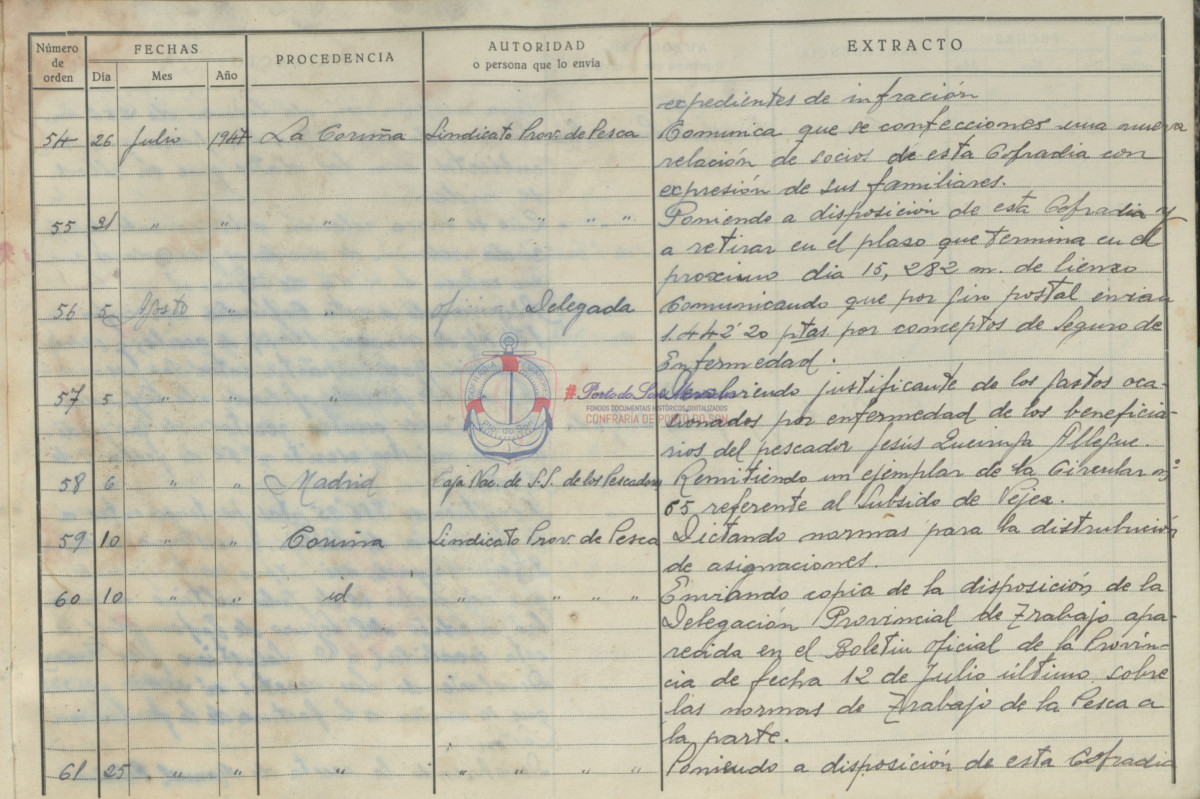 Número de orden
FECHAS
Día Mes Año
PROCEDENCIA
AUTORIDAD
o persona que lo envía
EXTRACTO
expedientes de infración
54 26 Julio 1947 La Coruña Sindicato Prov. de Pesca Comunica que se confecciones una nueva
relación de socios de esta Cofradia con
expresión de sus familiares.
55 31 " " " " " " " Poniendo a disposición de esta Cofradia y
a retirar en el plazo que termina en el
proximo dia 15, 282 m. de lienzo
56 5 Agosto " " oficina Delegada Comunicando que por giro postal envian
1.442'20 ptas por conceptos de Seguro de
Enfermedad.
57 5 " " " justificante de los gastos oca-
sionados por enfermedad de los beneficia-
rios del pescador Jesús Queiruga Allegue.
58 6 " " Madrid Caja Nac. de S.S. de los Pescadores Remitiendo un ejemplar de la Circular nº
65 referente al Subsido de Vejez.
59 10 " " Coruña Sindicato Prov. de Pesca Dictando normas para la distrubución
de asignaciones.
60 10 " " id " " " " Enviando copia de la disposición de la
Delegación Provincial de Trabajo apa-
recida en el Boletin oficial de la Provin-
cia de fecha 12 de Julio último sobre
las normas de Trabajo de la Pesca a
la parte.
61 25 " " id " " " " Poniendo a disposición de esta Cofradia
#Porto do Son
FONDOS DOCUMENTAIS HISTÓRICOS DIXITALIZADOS
CONFRARÍA DE PORTO DO SON